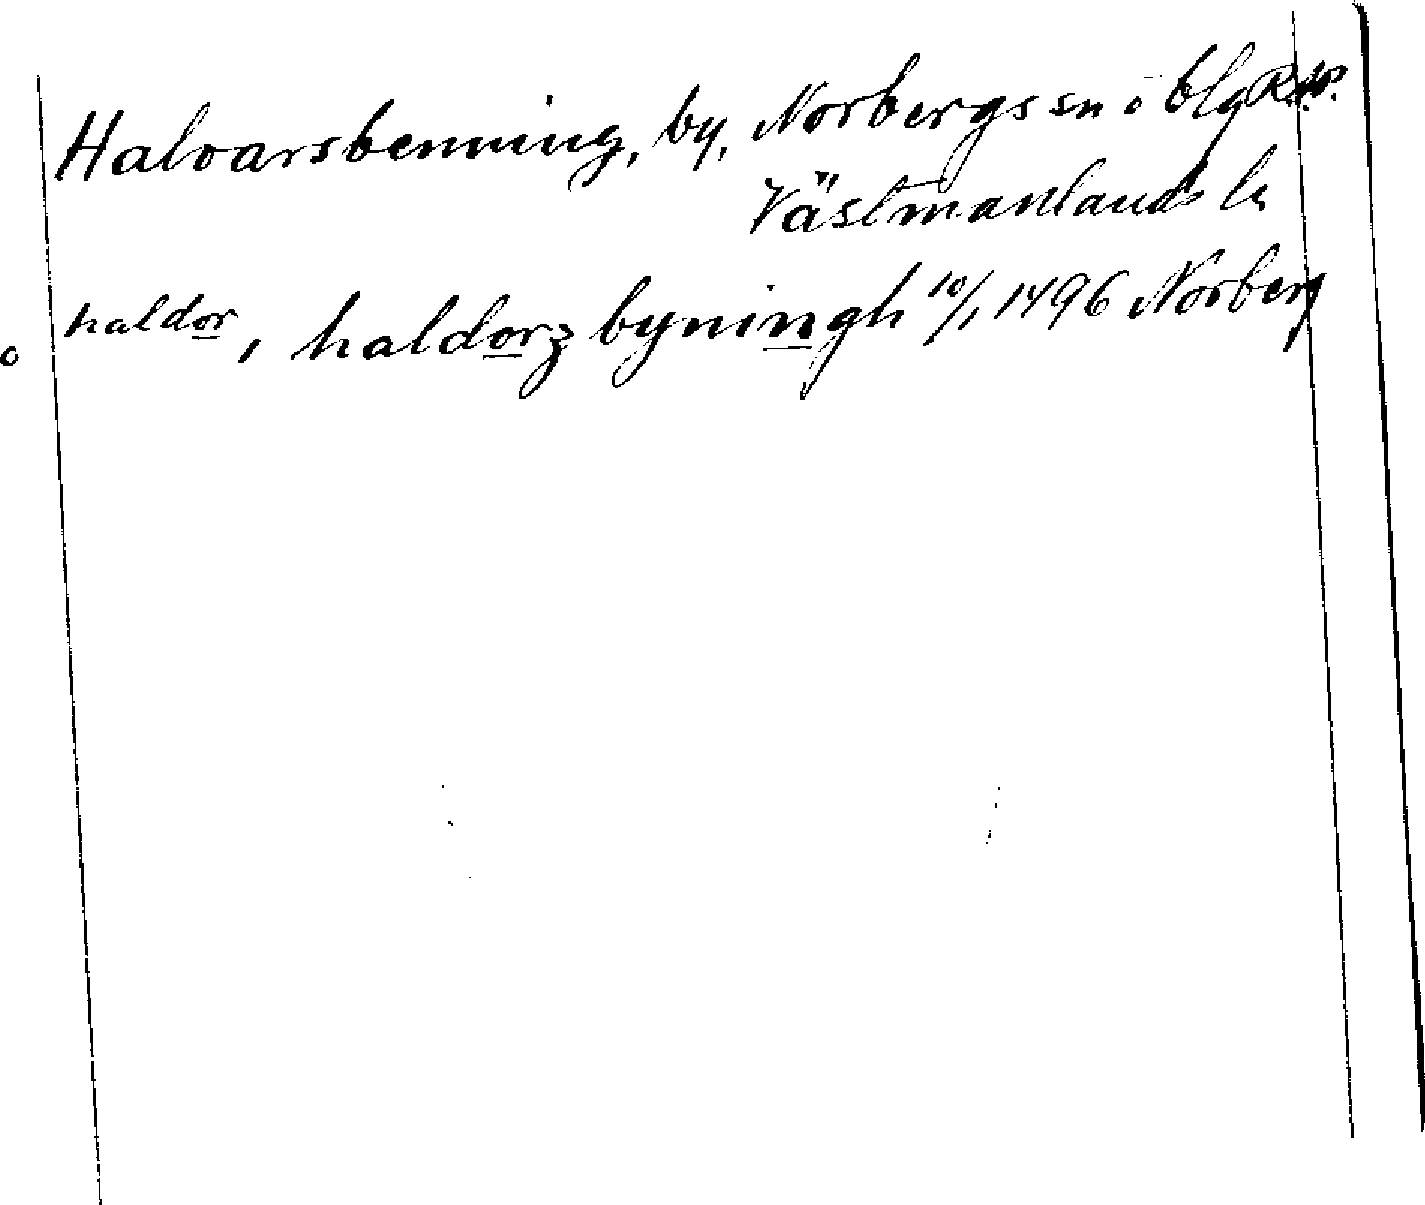 Halvarsbenning, by, Norbergs sn o blg
Västmanlands l.
haldor, haldorz byningh 10/1 1496 Norberg